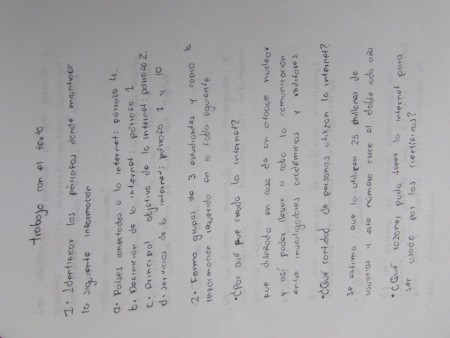 trabajo con el texto
1. Identificar los párrafos donde encontrar
la siguiente información
a. Países conectados a la internet: párrafo 4.
b. Definición de la internet: párrafo 1
c. Principal objetivo de la internet: párrafo 2.
d. servicios de la internet: párrafo 7 y 10
2. Forma grupos de 3 estudiantes y
información
• ¿Por qué fue creada la internet?
fue diseñada en caso de un ataque nuclear
y así poder llevar a cabo la comunicación
entre investigadores académicos y militares
• ¿Qué cantidad de personas utilizan la internet?
se estima que la utilizan 25 millones de
usuarios y este número crece el doble cada año
• ¿Qué razones pudo tener la internet para
ser usada por los científicos?